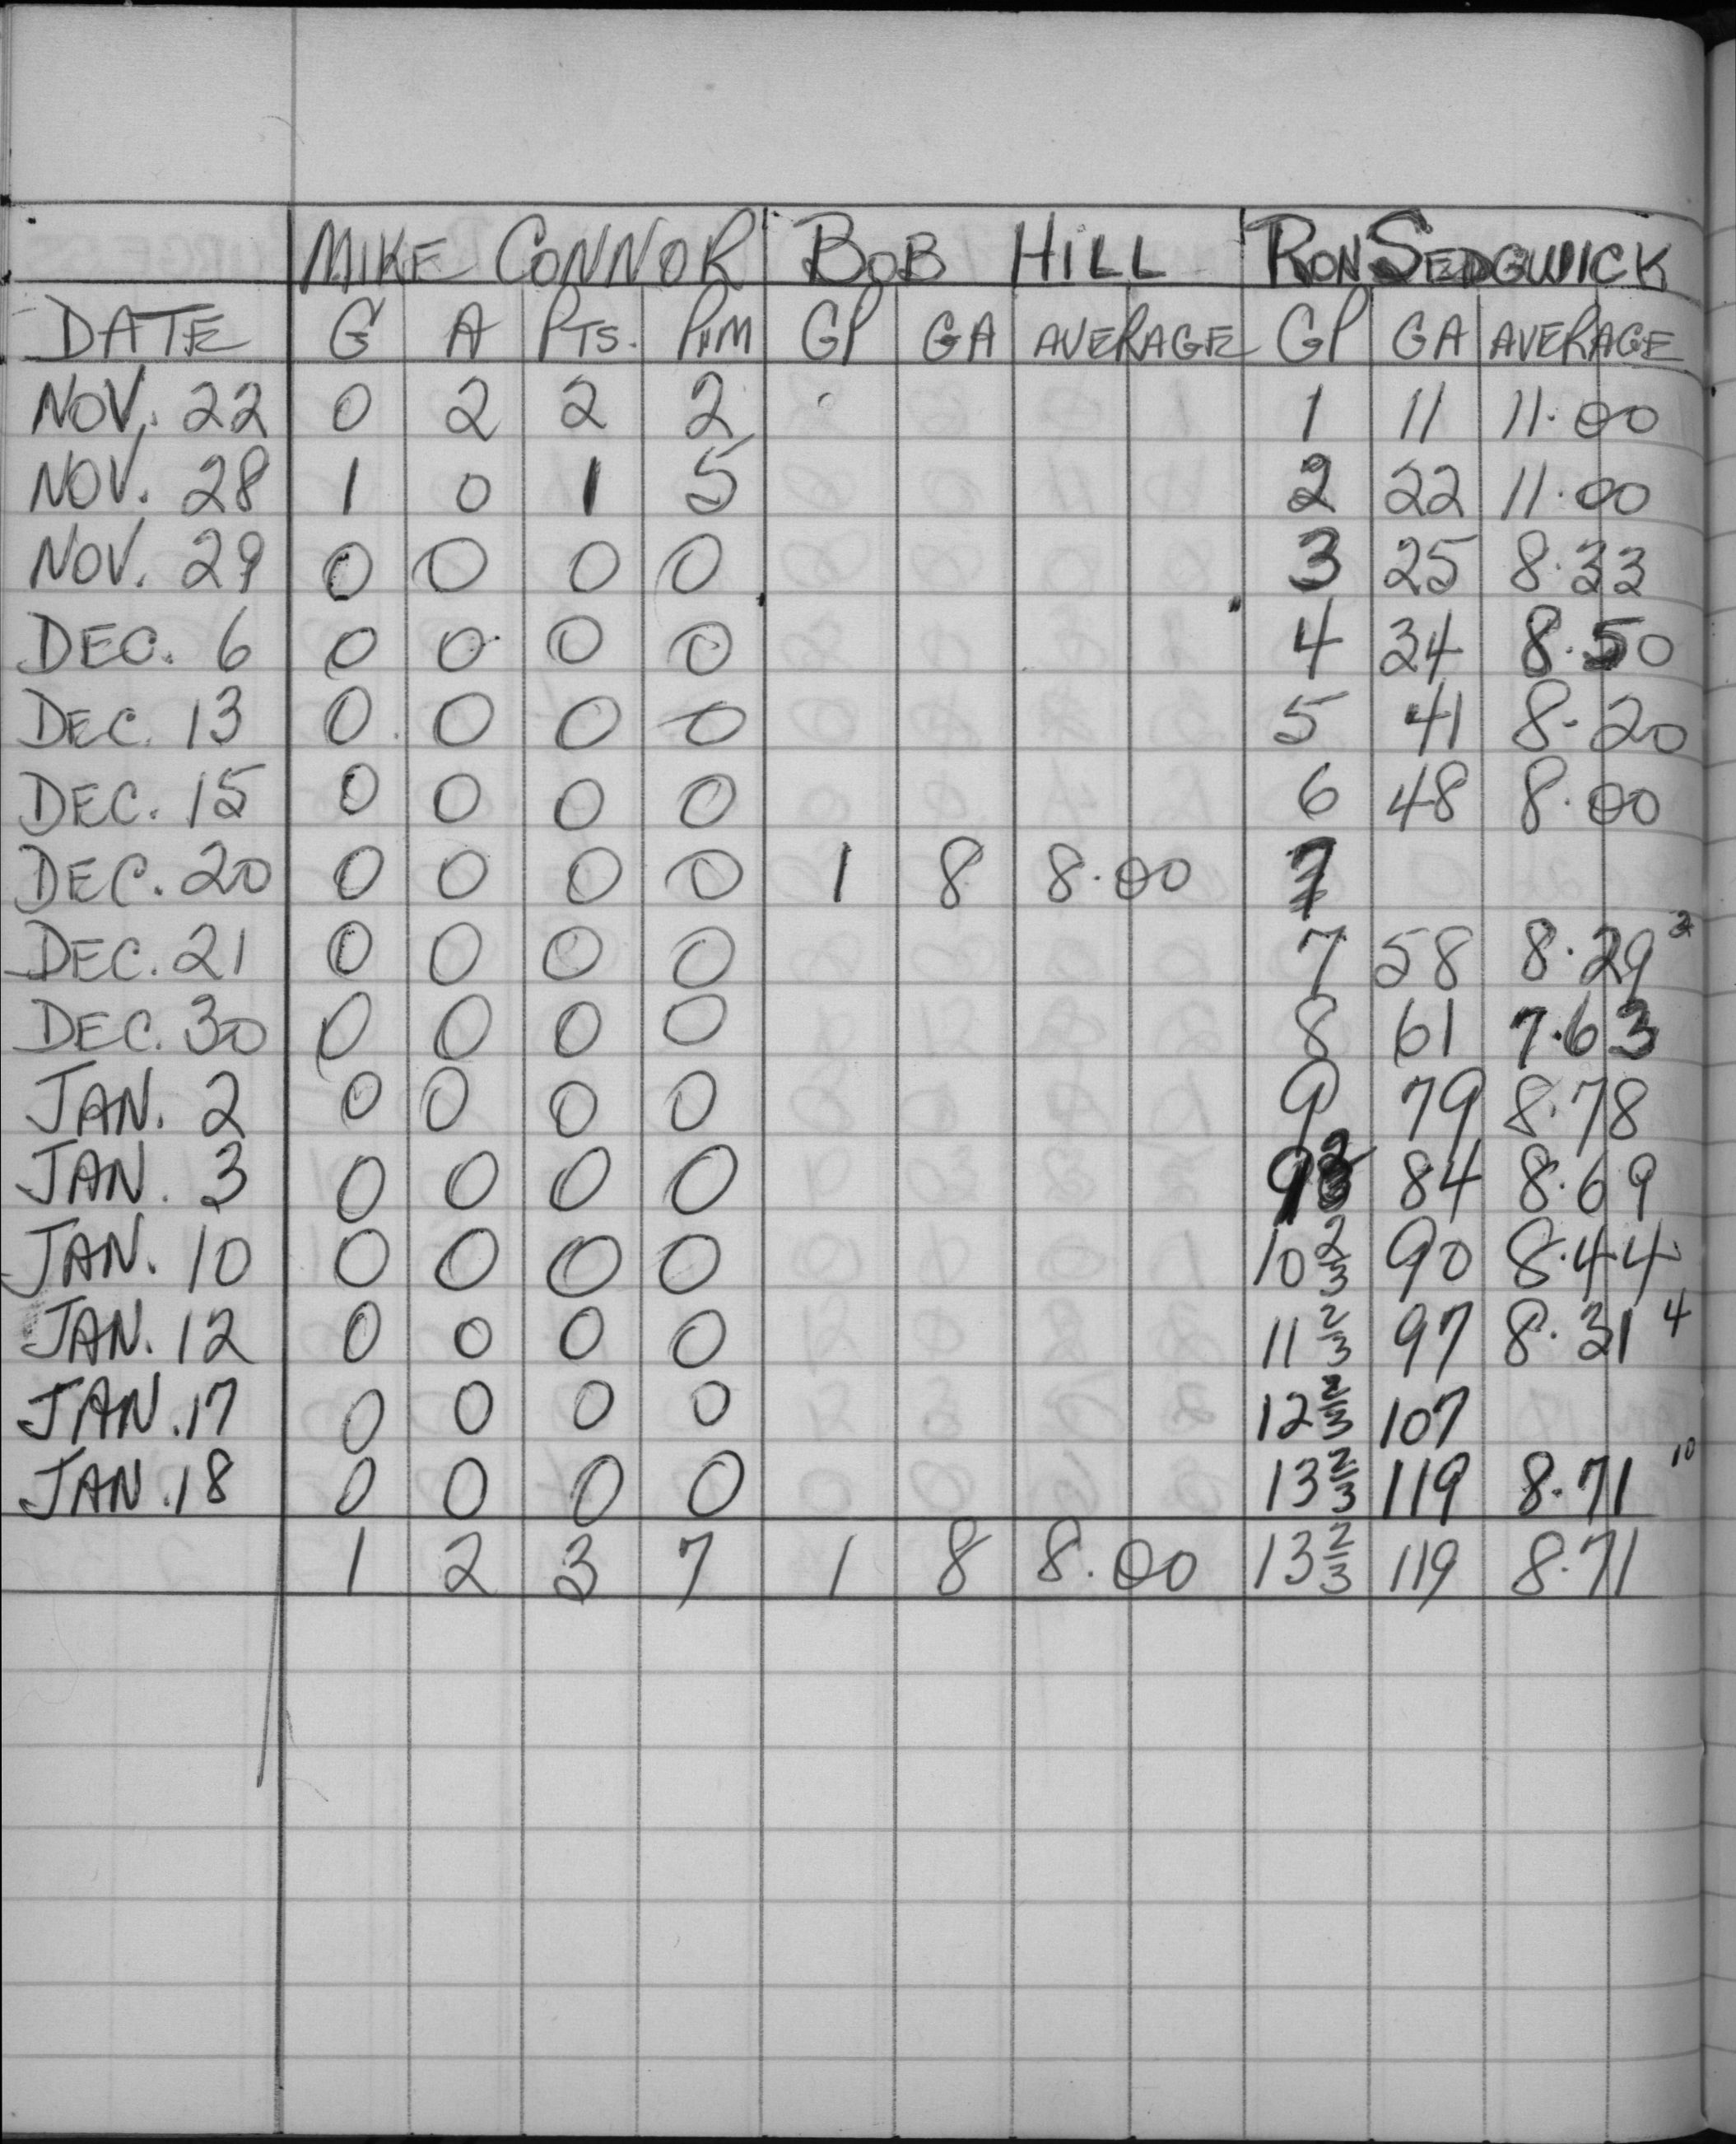 MIKE CONNOR BOB HILL RON SEDGWICK
DATE G A PTS. PIM GP GA AVERAGE GP GA AVERAGE
NOV. 22 0 2 2 2 1 11 11.00
NOV. 28 1 0 1 5 2 22 11.00
NOV. 29 0 0 0 0 3 25 8.33
DEC. 6 0 0 0 0 4 34 8.50
DEC. 13 0 0 0 0 5 41 8.20
DEC. 15 0 0 0 0 6 48 8.00
DEC. 20 0 0 0 0 1 8 8.00
DEC. 21 0 0 0 0 7 58 8.29
DEC. 30 0 0 0 0 8 61 7.63
JAN. 2 0 0 0 0 9 79 8.78
JAN. 3 0 0 0 0 9 2/3 84 8.69
JAN. 10 0 0 0 0 10 2/3 90 8.44
JAN. 12 0 0 0 0 11 2/3 97 8.31 4
JAN. 17 0 0 0 0 12 2/3 107
JAN. 18 0 0 0 0 13 2/3 119 8.71 10
1 2 3 7 1 8 8.00 13 2/3 119 8.71